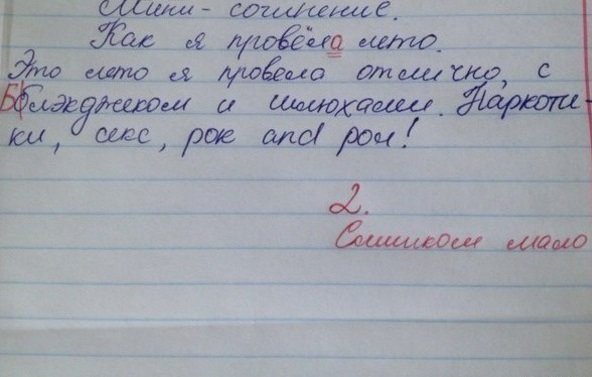 Мини-сочинение.
Как я провела лето.
Это лето я провела отлично, с
Блэкджеком и шлюхами. Наркоти-
ки, секс, рок and рол!
2.
Слишком мало